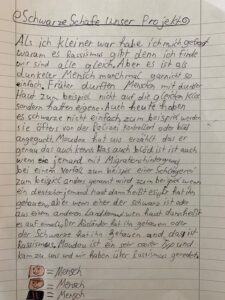 Schwarze Schafe Unser Projekt
Als ich kleiner war habe ich mich gefragt
warum es Rassismus gibt denn ich finde
wir sind alle gleich. Aber es ist als
dunkeler Mensch manchmal garnicht so
einfach. Früher durften Menschen mit dunkler
Haut zum beispiel nicht auf die gleichen Klos
sondern hatten eigene. Auch heute haben
es schwarze nicht einfach zum beispiel werden
sie öfters von der Polizei kontrolliert oder blöd
angeguckt. Moudou hat uns erzählt das er
genau das auch kennt. Was auch blöd ist ist auch
wenn jemand mit Migrationshintergrund
bei einem Vorfall zum beispiel einer Schlägerei
zum beispiel anders genannt wird zum beispiel wenn
ein deutscher jemand haut dann heißt es er hat ihn
gehauen, aber wenn einer der schwarz ist oder
aus einem anderen Land jemanden haut dann heißt
es auf einmal, der Ausländer hat ihn gehauen oder
der Schwarze hat ihn gehauen und das ist
Rassismus. Moudou ist ein sehr cooler Typ und
kam zu uns und wir haben über Rassismus geredet.
= Mensch
= Mensch
= Mensch